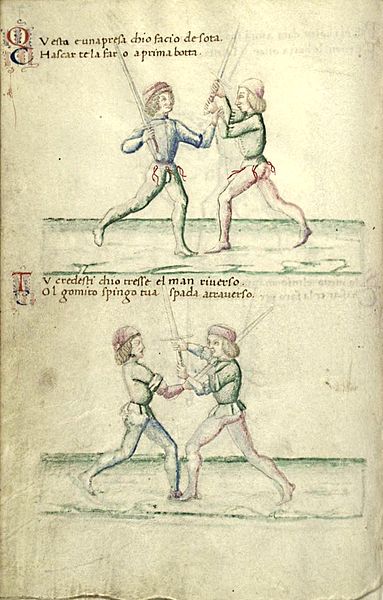 Questa e una presa chio facio de sota.
Hascar te la faro a prima botta.
Tu credesti chio tresse el man riverso.
Ol gomito spingo tua spada atraverso.